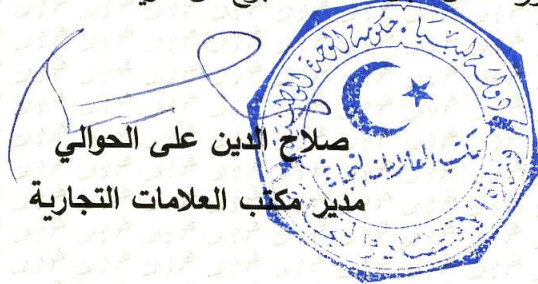 صلاح الدين على الحوالي
مدير مكتب العلامات التجارية
دولة ليبيا حكومة الوحدة الوطنية
مكتب العلامات التجارية